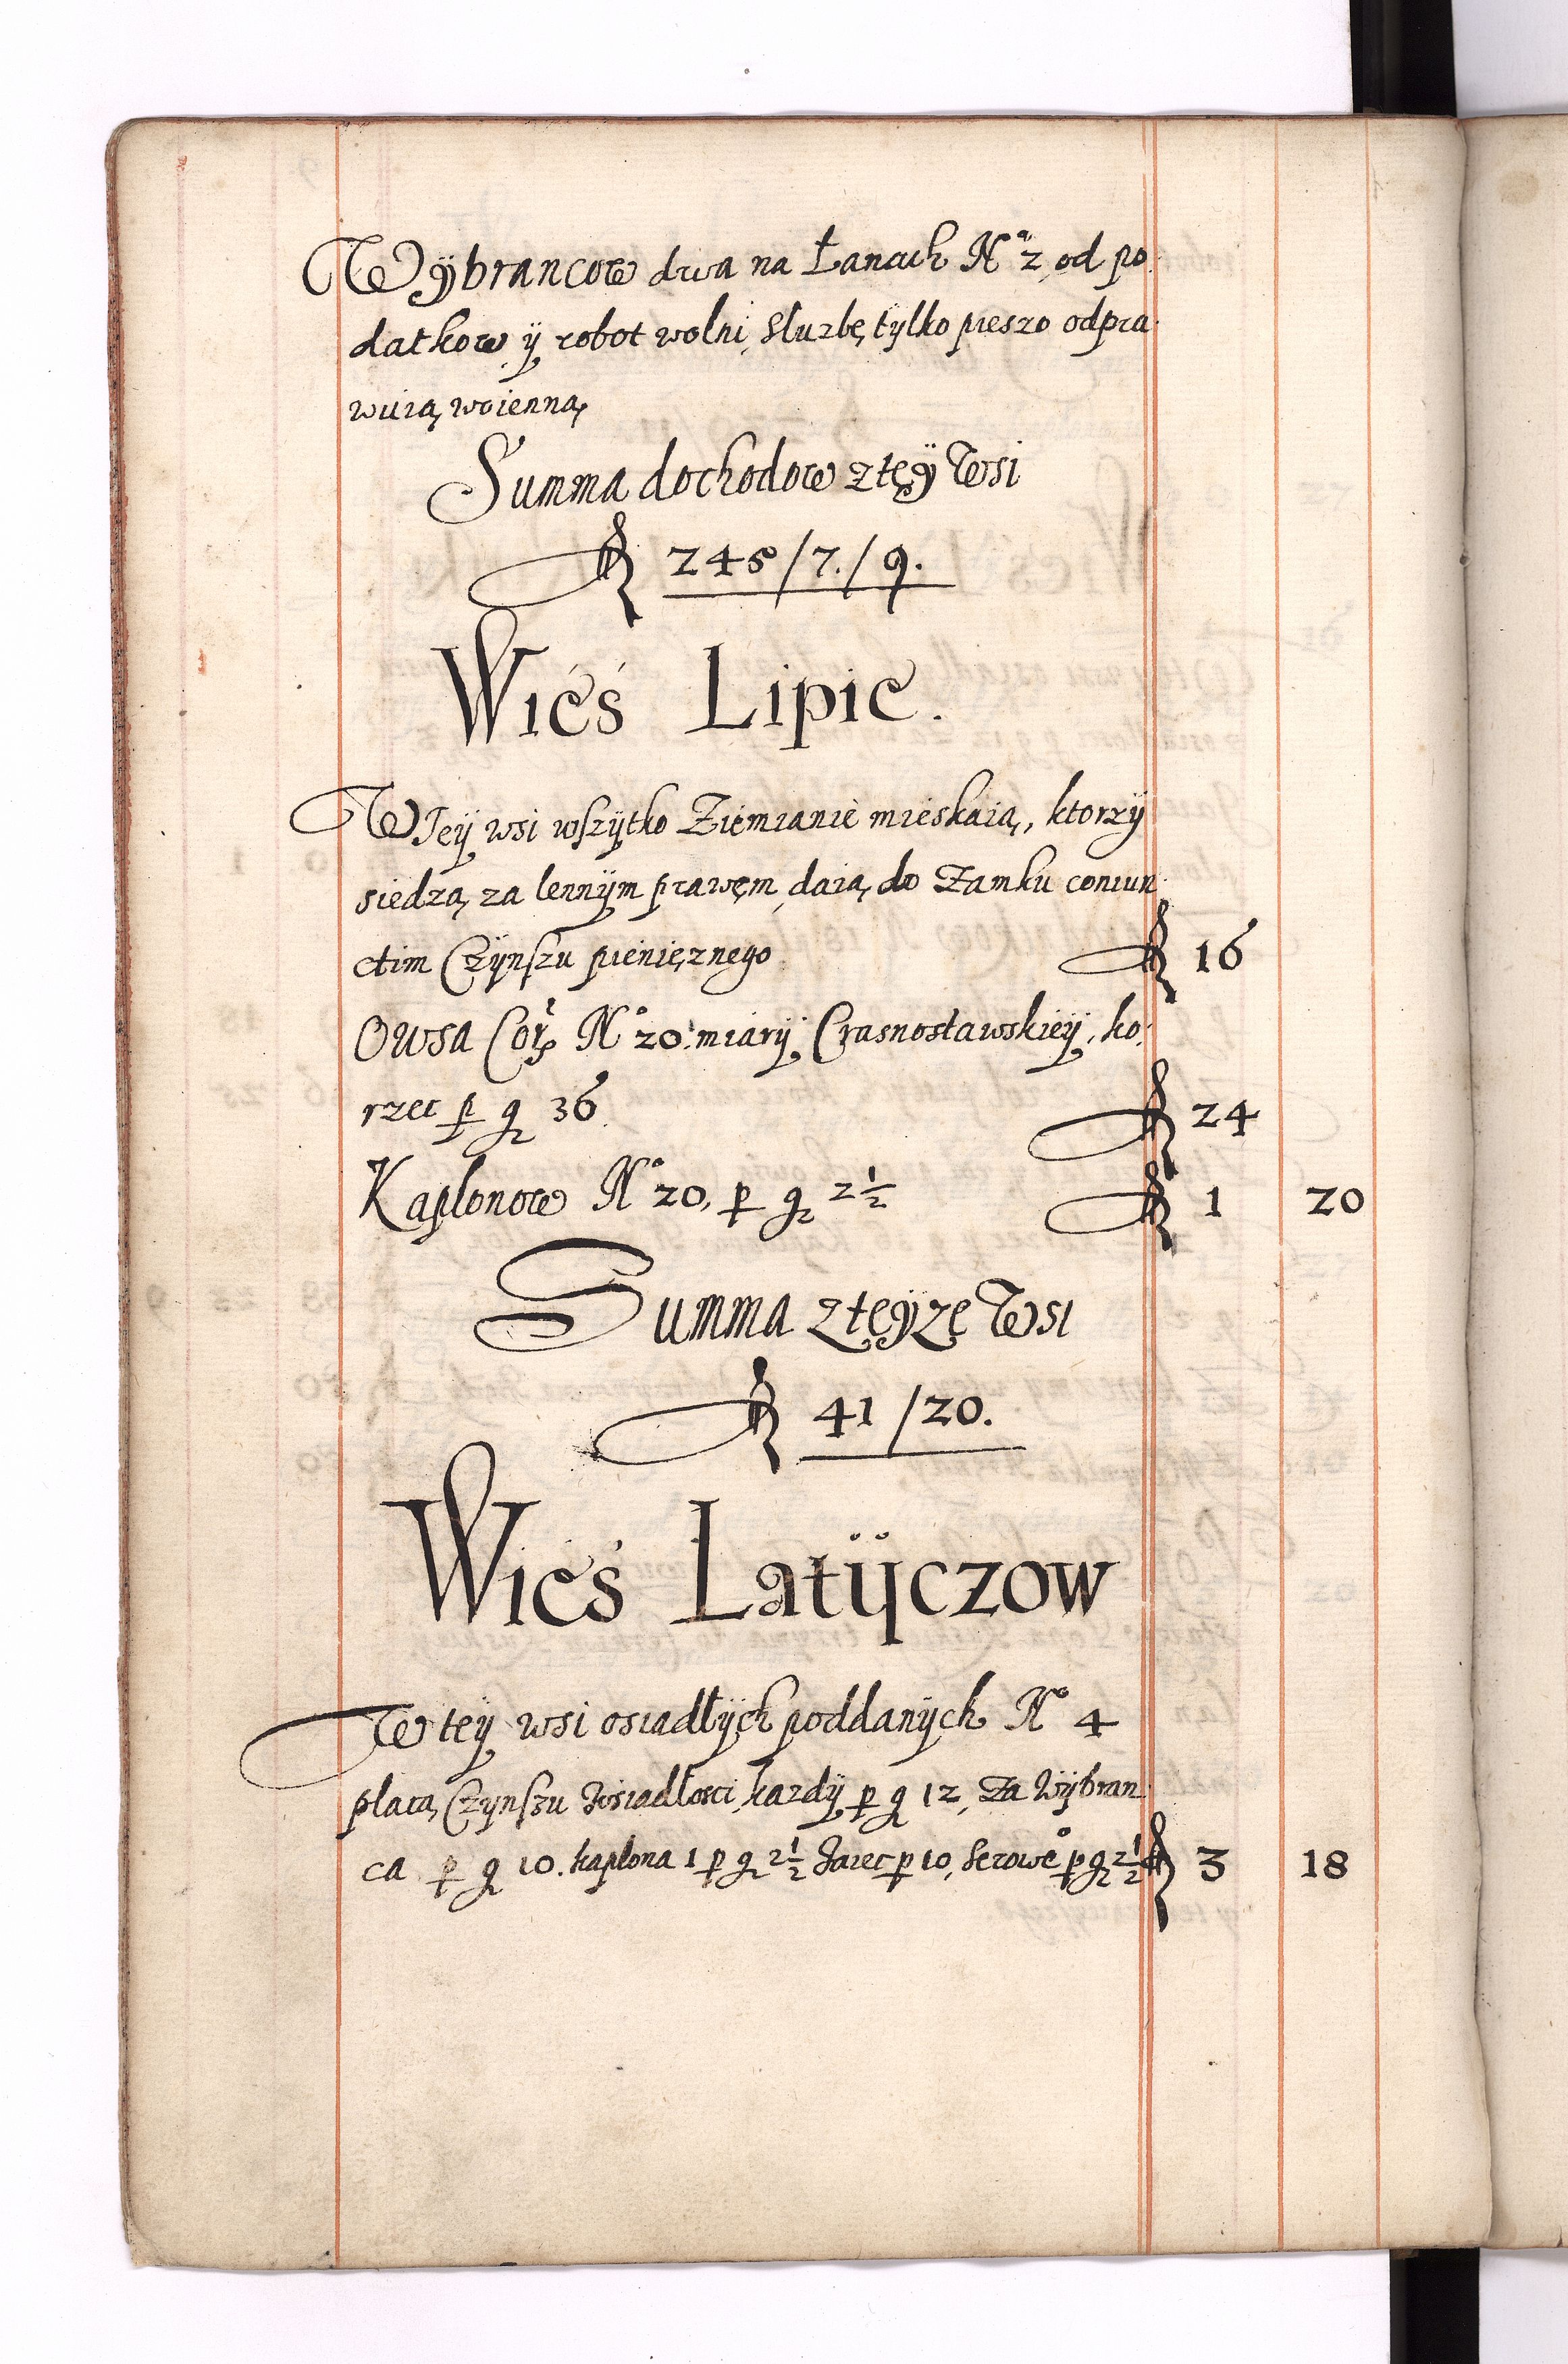 Wÿbrancow dwa na Łanach No 2, od po
datkow ÿ robot wolni, Sluzbę tylko pieszo odpra
wuią woienną
Summa dochodow z tęÿ Wsi
fl 245/7./9.
Wieś Lipie.
W Teÿ wsi wszÿtko Ziemianie mieskaią, ktorzÿ
siedzą za lennÿm prawęm, daią do Zamku coniun
ctim Czÿnszu pienięznego fl 16
Owsa Cor No 20. miarÿ Crasnostawskieÿ, ko
rzec p g 36. fl 24
Kaplonow No 20, p g 2½ fl 1 20
Summa z tęÿzę Wsi
fl 41/20.
Wieś Latÿczow
W teÿ wsi osiadłÿch poddanÿch No 4
płacą Czÿnszu Zosiadłosci kazdÿ p g 12, Za Wÿbran
ca p g 10. kapłona 1 p g 2½ Jaiec p 10, Serow p g 2½ fl 3 18